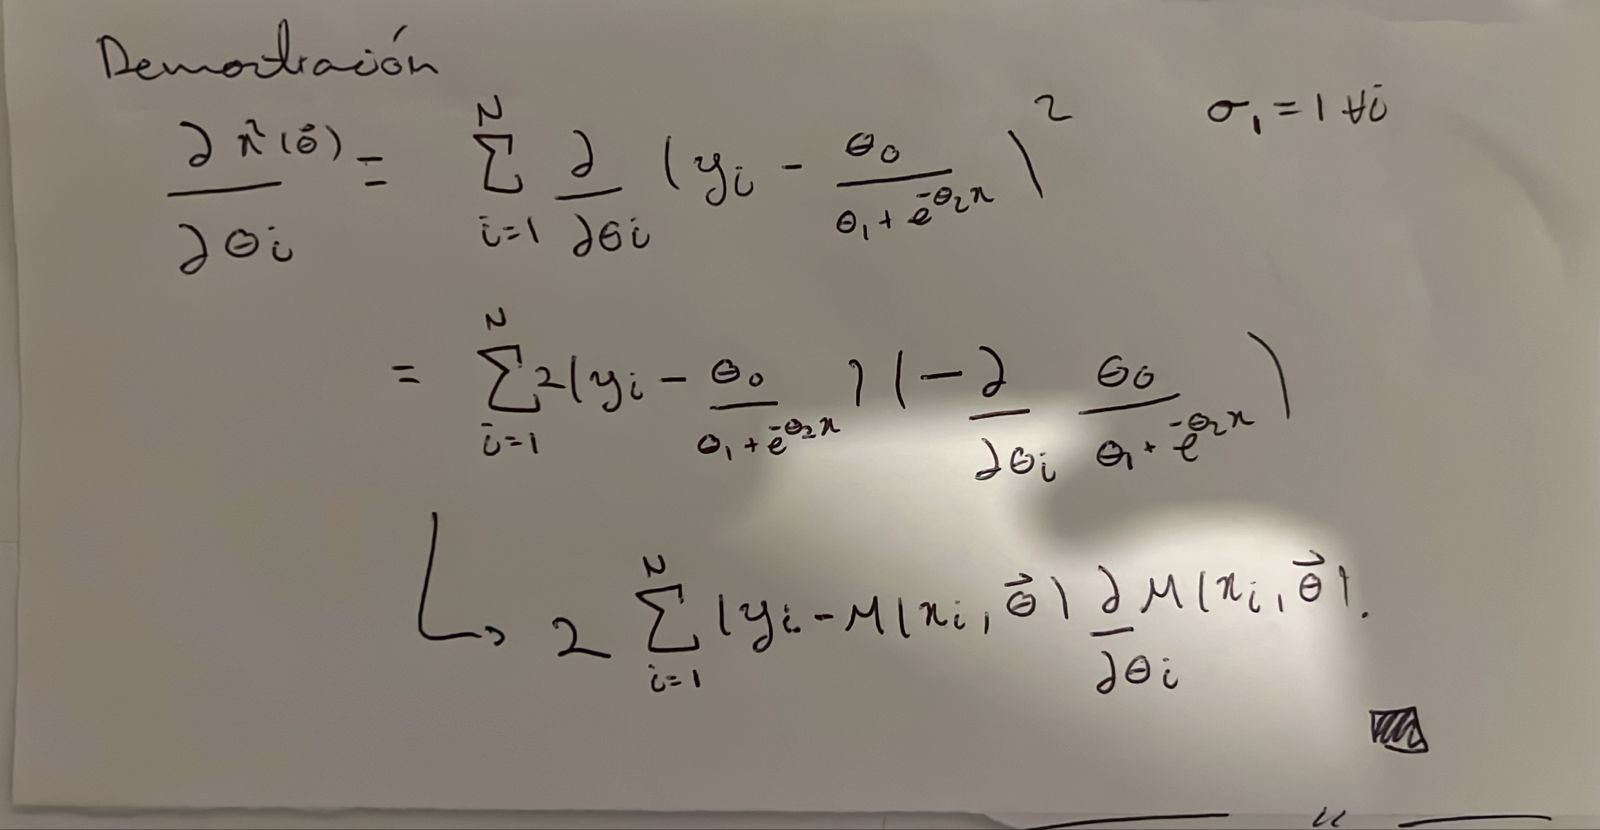 Demostración
∂χ²(θ⃗)/∂θi = Σ_{i=1}^{N} ∂/∂θi (yi - θ0/(θ1 + e^{-θ2x}))² σ1 = 1 ∀i
= Σ_{i=1}^{N} 2(yi - θ0/(θ1 + e^{-θ2x}))(-∂/∂θi θ0/(θ1 + e^{-θ2x}))
↳ 2 Σ_{i=1}^{N} (yi - M(xi, θ⃗) ∂/∂θi M(xi, θ⃗).